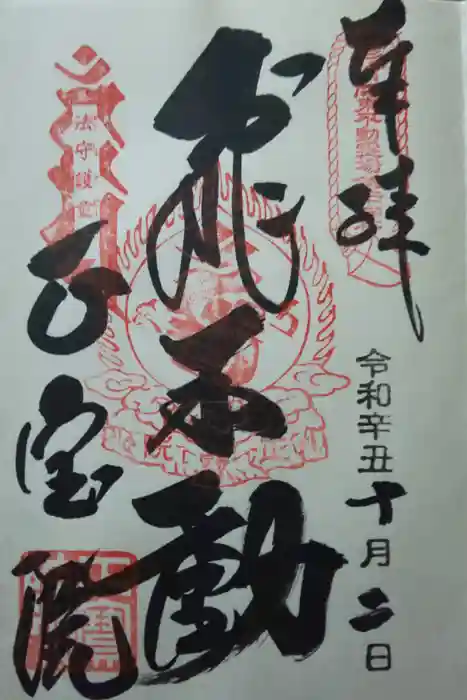 奉拝
令和辛丑十月二日
飛不動
法守護
正宝院